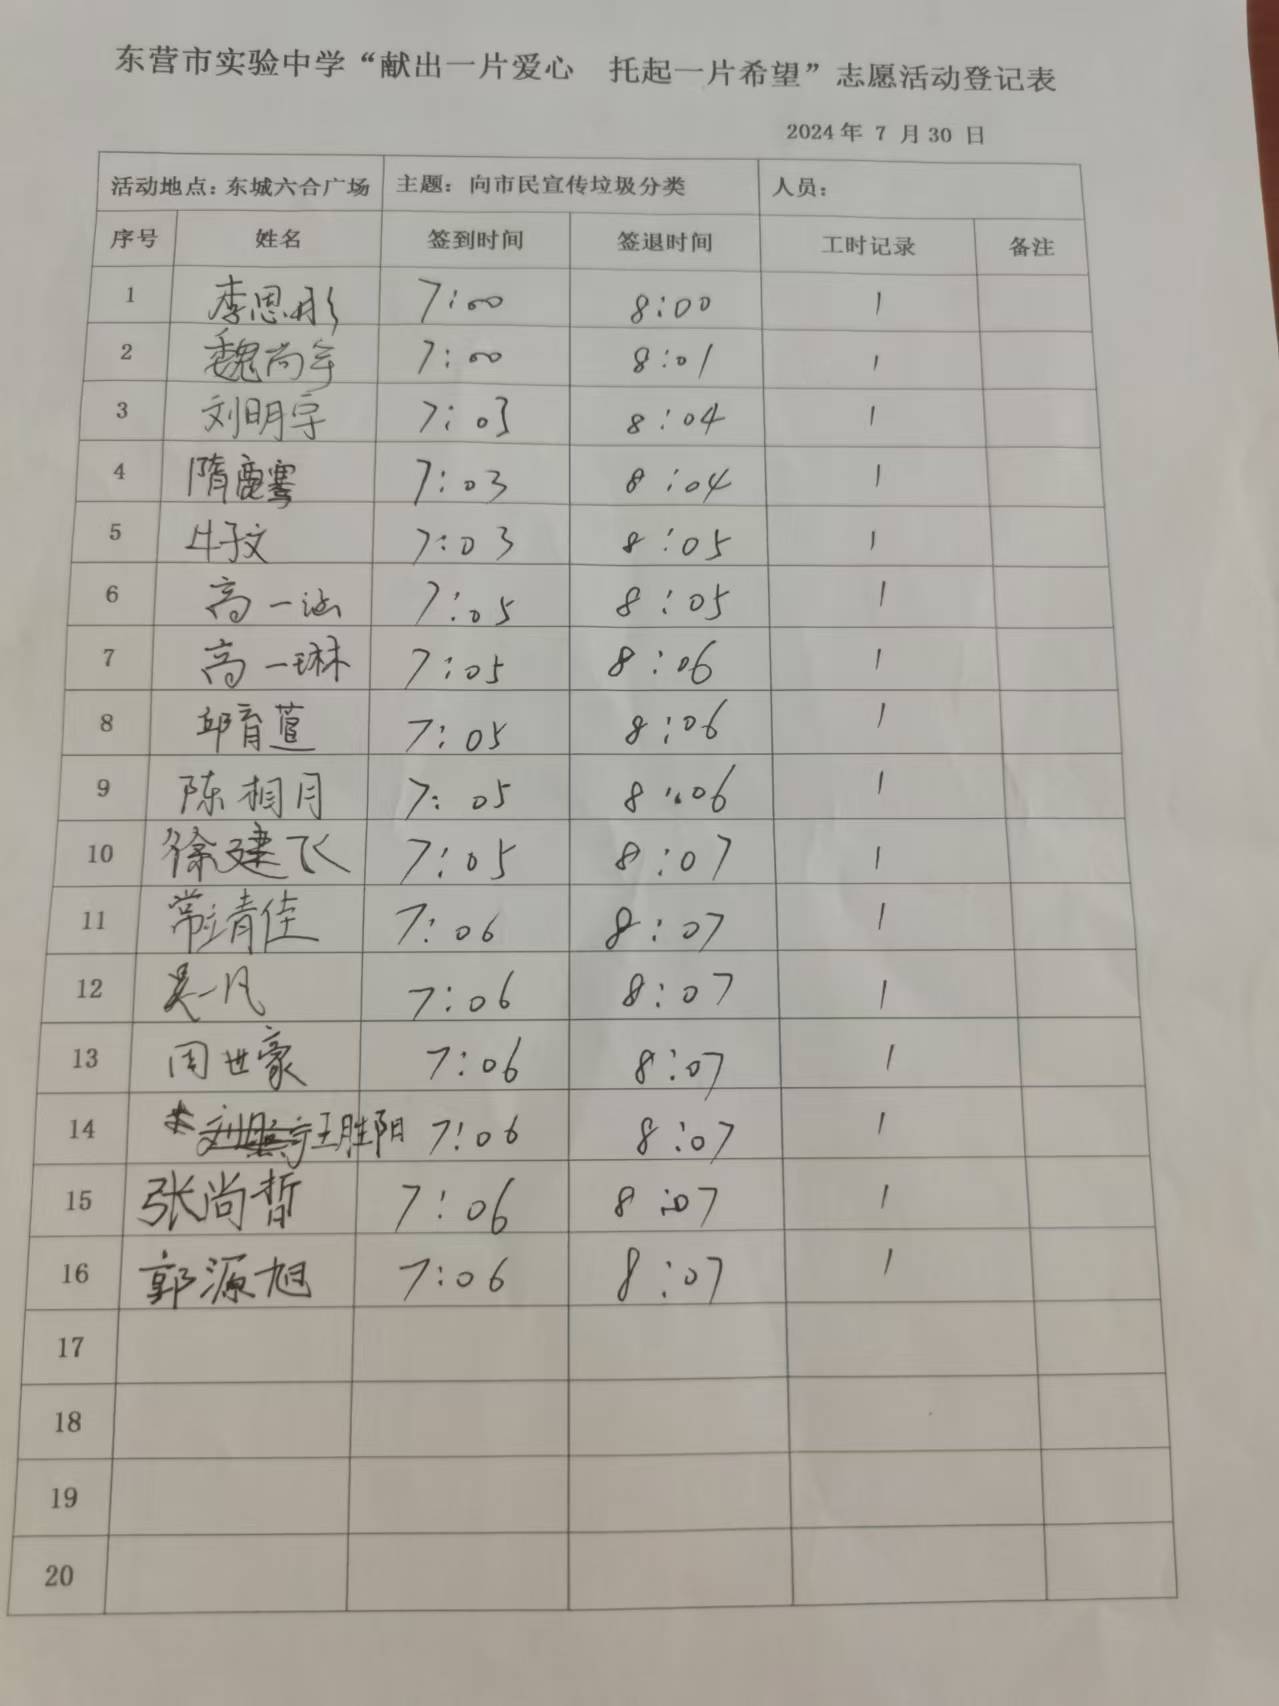 东营市实验中学“献出一片爱心 托起一片希望”志愿活动登记表
2024年 7 月 30 日
活动地点：东城六合广场 主题：向市民宣传垃圾分类 人员：
序号 姓名 签到时间 签退时间 工时记录 备注
1 李恩彤 7:00 8:00 1
2 魏尚宇 7:00 8:01 1
3 刘明宇 7:03 8:04 1
4 隋鹿骞 7:03 8:04 1
5 牛子文 7:03 8:05 1
6 高一涵 7:05 8:05 1
7 高一琳 7:05 8:06 1
8 邱育萱 7:05 8:06 1
9 陈相月 7:05 8:06 1
10 徐建飞 7:05 8:07 1
11 常靖佳 7:06 8:07 1
12 吴一凡 7:06 8:07 1
13 周世豪 7:06 8:07 1
14 王胜阳 7:06 8:07 1
15 张尚哲 7:06 8:07 1
16 郭源旭 7:06 8:07 1
17
18
19
20